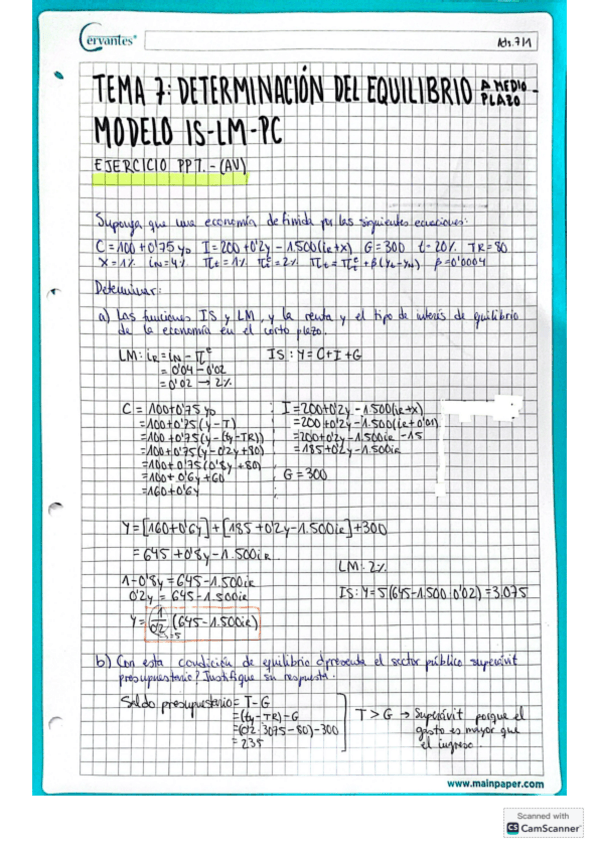 Cervantes
Ads.7/1
TEMA 7: DETERMINACIÓN DEL EQUILIBRIO A MEDIO-PLAZO
MODELO IS-LM-PC
EJERCICIO PPT.-(AV)
Suponga que una economía definida por las siguientes ecuaciones:
C=100+0'75 yD I=200+0'2y-1.500(iR+x) G=300 t=20% TR=80
X=1% iN=4% πt=1% πᵉt=2% πt=πᵉt+β(yt-yN) β=0'0004
Determinar:
a) Las funciones IS y LM, y la renta y el tipo de interés de equilibrio
de la economía en el corto plazo.
LM: iR=iN-πᵉ IS: Y=C+I+G
=0'04-0'02
=0'02→2%
C=100+0'75 yD I=200+0'2y-1.500(iR+x)
=100+0'75(y-T) =200+0'2y-1.500(iR+0'01)
=100+0'75(y-(ty-TR)) =200+0'2y-1.500iR-15
=100+0'75(y-0'2y+80) =185+0'2y-1.500iR
=100+0'75(0'8y+80)
=100+0'6y+60 G=300
=160+0'6y
Y=[160+0'6y]+[185+0'2y-1.500iR]+300
=645+0'8y-1.500iR
LM: 2%
1-0'8y=645-1.500iR
0'2y=645-1.500iR IS: Y=5(645-1.500·0'02)=3.075
Y=(1/0'2)(645-1.500iR)
=5
b) Con esta condición de equilibrio ¿presenta el sector público superávit
presupuestario? Justifique su respuesta.
Saldo presupuestario=T-G
=(ty-TR)-G T>G → Superávit porque el
=(0'2·3075-80)-300 gasto es mayor que
=235 el ingreso.
www.mainpaper.com
Scanned with
CS CamScanner